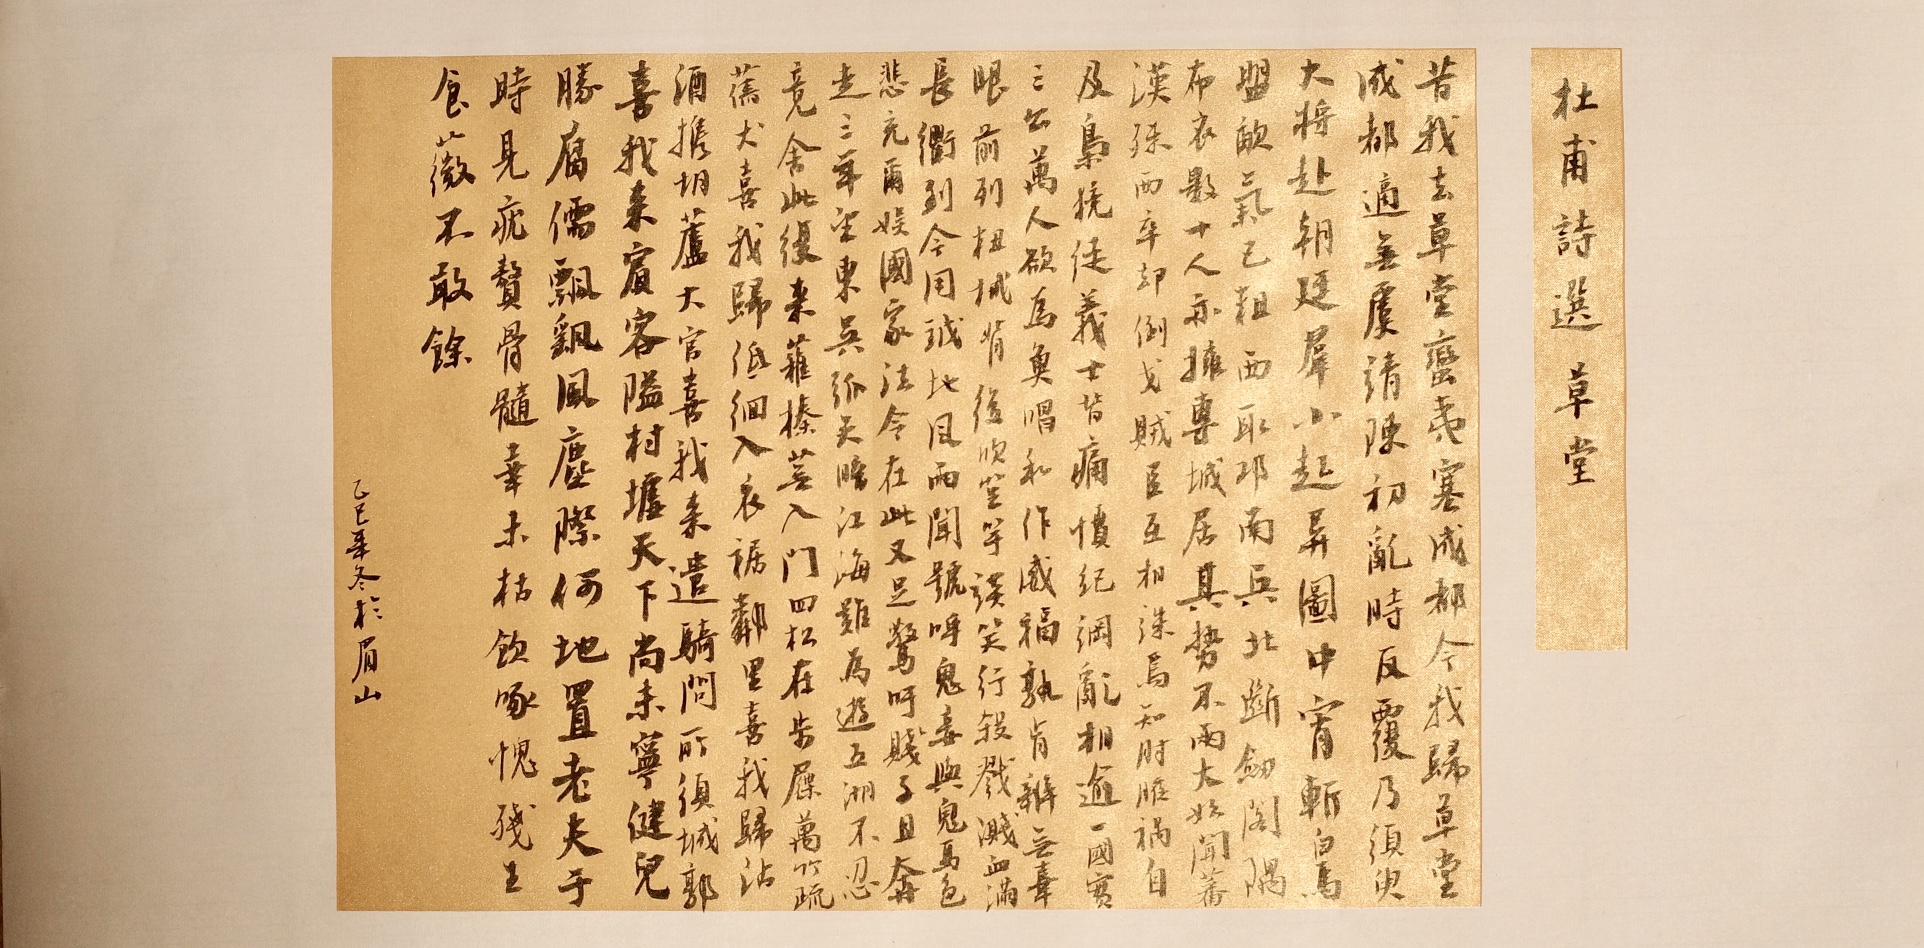 杜甫詩選 草堂
昔我去草堂蠻夷塞成都今我歸草堂
成都適無虞請陳初亂時反覆乃須臾
大將赴朝廷羣小起異圖中宵斬白馬
盟歃氣已粗西取邛南兵北斷劒閣隅
布衣數十人亦擁專城居其勢不兩大始聞蕃
漢殊西卒却倒戈賊臣互相誅焉知肘腋禍自
及梟獍徒義士皆痛憤紀綱亂相逾一國實
三公萬人欲為魚唱和作威福孰肯辨無辜
眼前列杻械背後吹笙竽談笑行殺戮濺血滿
長衢到今用鉞地風雨聞號呼鬼妾與鬼馬色
悲充爾娛國家法令在此又足驚吁賤子且奔
走三年望東吳弧矢暗江海難為遊五湖不忍
竟舍此復來薙榛蕪入門四松在步屧萬竹疏
舊犬喜我歸低徊入衣裾鄰里喜我歸沽
酒攜胡蘆大官喜我來遣騎問所須城郭
喜我來賓客隘村墟天下尚未寧健兒
勝腐儒飄颻風塵際何地置老夫于
時見疣贅骨髓幸未枯飲啄愧殘生
食薇不敢餘
乙巳季冬於眉山